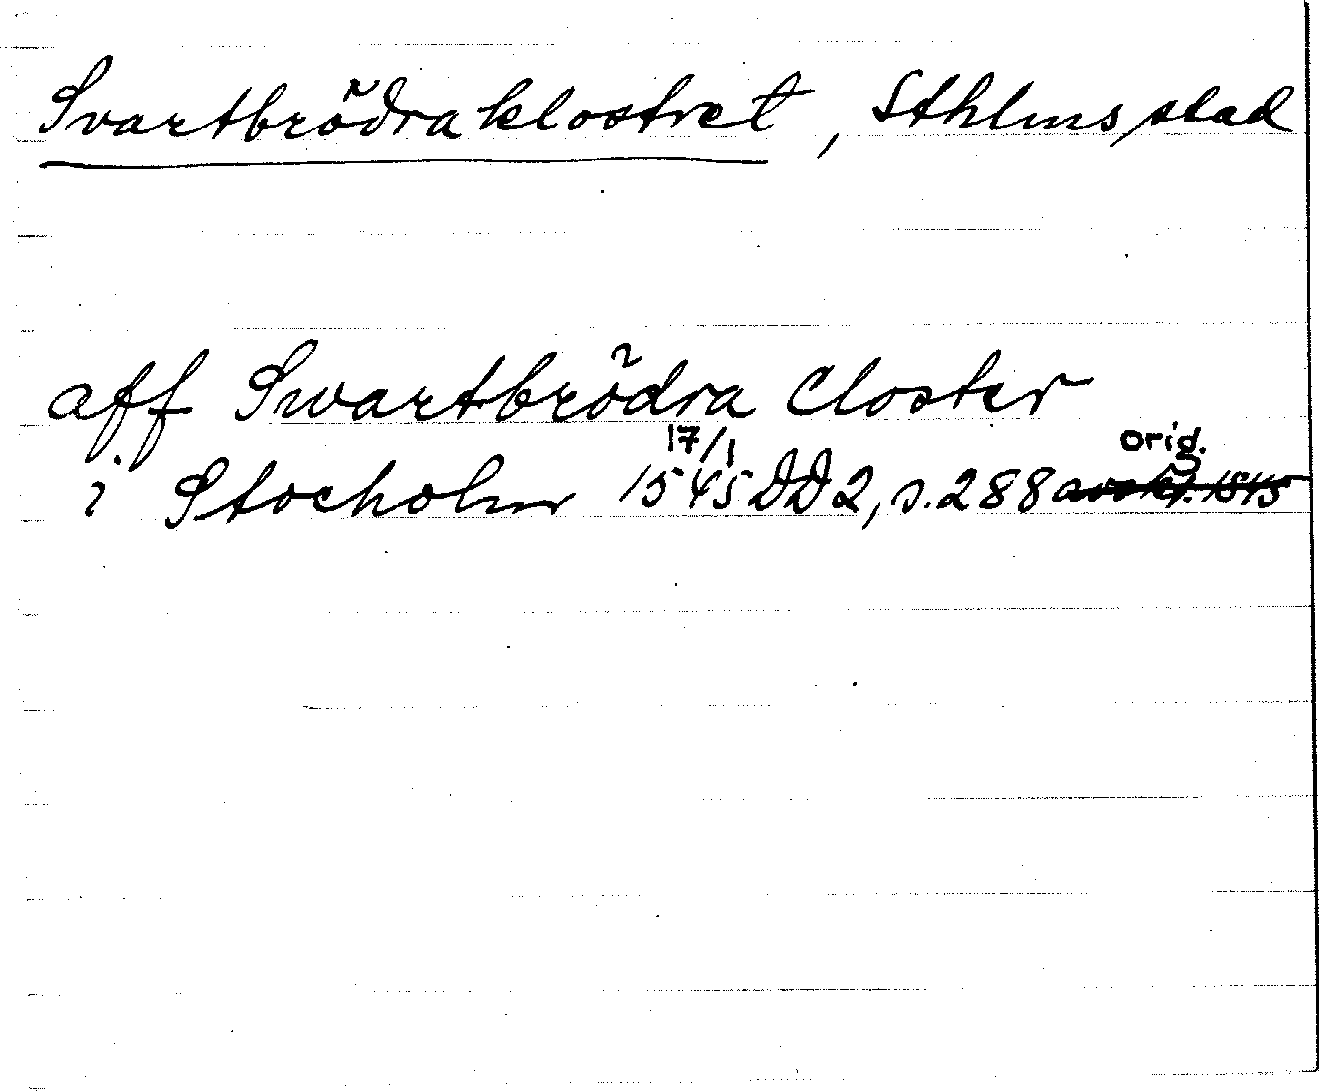 Svartbrödraklostret, Sthlms stad
aff Swartbrödra Closter
17/1 orig.
i Stocholm 1545 DD2, s. 288 avskr. 1545